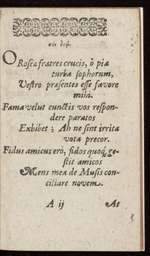 O Rosæ fratres crucis, ô pia
turba sophorum,
Vestro præsentes esse favore
mihi.
Fama velut cunctis vos respon-
dere paratos
Exhibet; Ah ne sint irrita
vota precor.
Fidus amicus erò, fidos quoq; ge-
stit amicos
Mens mea de Musis con-
ciliare novem.
A ij
At